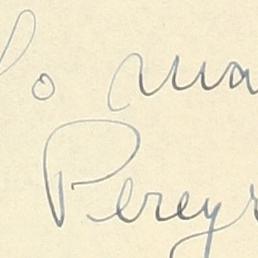 To Ma
Perey